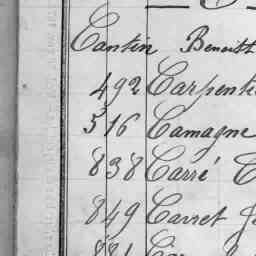 Cantin Benoist
492 Carpenti
516 Camagne
838 Carré C
849 Carret J
881